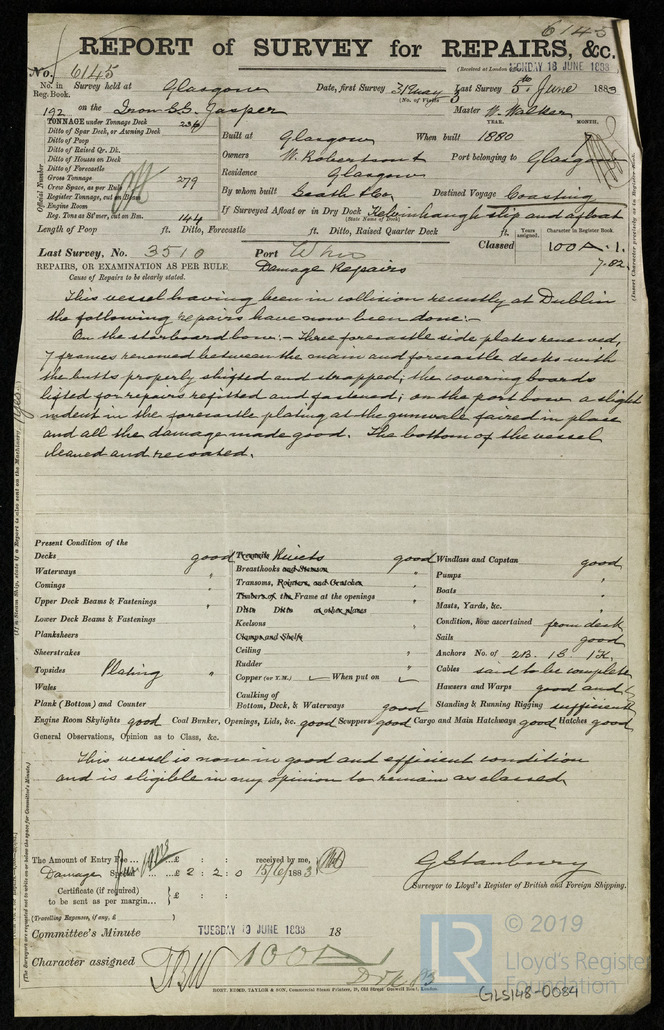 6145
REPORT of SURVEY for REPAIRS, &c.
(Received at London MONDAY 18 JUNE 1883
No. 6145
No. in Reg. Book. Survey held at Glasgow Date, first Survey 31 May Last Survey 5th June 1883
(No. of Visits 3
192 on the Iron S.S. Jasper Master W. Walker
TONNAGE under Tonnage Deck 234
Ditto of Spar Deck, or Awning Deck
Ditto of Poop
Ditto of Raised Qr. Dk.
Ditto of Houses on Deck
Ditto of Forecastle
Gross Tonnage 279
Crew Space, as per Rule
Register Tonnage, cut on Beam
Engine Room
Reg. Tons as St'mer, cut on Bm. 144
Official Number
YEAR. MONTH.
Built at Glasgow When built 1880
Owners W. Robertson Port belonging to Glasgow
Residence Glasgow
By whom built & Co. Destined Voyage Coasting
If Surveyed Afloat or in Dry Dock Kelvinhaugh slip and afloat
(State Name of Dock)
Length of Poop ft. Ditto, Forecastle ft. Ditto, Raised Quarter Deck ft.
Years assigned. Character in Register Book.
Last Survey, No. 3510 Port Classed 100A.1.
7.82.
REPAIRS, OR EXAMINATION AS PER RULE Damage Repairs
Cause of Repairs to be clearly stated.
This vessel having been in collision recently at Dublin
the following repairs have now been done:-
On the starboard bow:- Three forecastle side plates renewed,
7 frames renewed between the main and forecastle decks with
the butts properly shifted and strapped; the covering boards
lifted for repairs refitted and fastened; on the port bow a slight
indent in the forecastle plating at the gunwale faired in place
and all the damage made good. The bottom of the vessel
cleaned and recoated.
Present Condition of the
Decks good
Waterways "
Comings "
Upper Deck Beams & Fastenings "
Lower Deck Beams & Fastenings
Planksheers
Sheerstrakes
Topsides Plating "
Wales
Plank (Bottom) and Counter
Treenails Rivets good
Breasthooks and Stemson "
Transoms, Pointers, and Crutches "
Timbers of the Frame at the openings "
Ditto Ditto at other places
Keelsons "
Clamps and Shelfs
Ceiling "
Rudder "
Copper (or Y.M.) When put on
Caulking of
Bottom, Deck, & Waterways good
Windlass and Capstan good
Pumps "
Boats "
Masts, Yards, &c. "
Condition, how ascertained from deck
Sails good
Anchors No. of 2B. 1S. 1K.
Cables said to be complete
Hawsers and Warps good and
Standing & Running Rigging sufficient
Engine Room Skylights good Coal Bunker, Openings, Lids, &c. good Scuppers good Cargo and Main Hatchways good Hatches good
General Observations, Opinion as to Class, &c.
This vessel is now in good and efficient condition
and is eligible in my opinion to remain as classed.
The Amount of Entry Fee ... £ : : received by me,
Damage Special £ 2 : 2 : 0 15/6/1883
Certificate (if required)
to be sent as per margin... } £ : :
(Travelling Expenses, if any, £ )
G Stanbury
Surveyor to Lloyd's Register of British and Foreign Shipping.
Committee's Minute TUESDAY 19 JUNE 1883 18
Character assigned 100A
ROBT. EDMD. TAYLOR & SON, Commercial Steam Printers, 19, Old Street Goswell Road, London.
LR
© 2019
Lloyd's Register
Foundation
GLS148-0084